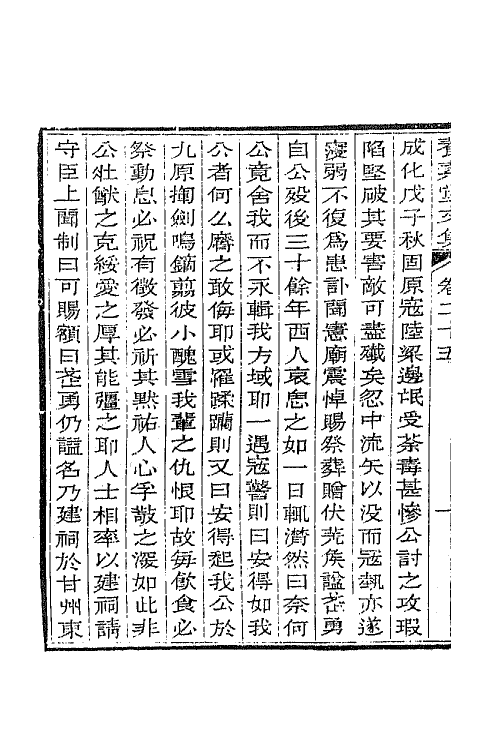 卷二十五
成化戊子秋固原寇陸梁邊氓受荼毒甚慘公討之攻瑕
陷堅破其要害敵可盡殲矣忽中流矢以没而寇埶亦遂
寖弱不復爲患訃聞憲廟震悼賜祭葬贈伏羌侯諡莊勇
自公殁後三十餘年西人哀思之如一日輒潸然曰奈何
公竟舍我而不永輯我方域耶一遇寇警則曰安得如我
公者何么麽之敢侮耶或罹蹂躪則又曰安得起我公於
九原揮劍鳴鏑翦彼小醜雪我輩之仇恨耶故每飲食必
祭動息必祝有徵發必祈其黙祐人心孚敬之深如此非
公壯猷之克綏愛之厚其能彊之耶人士相率以建祠請
守臣上聞制曰可賜額曰莊勇仍諡名乃建祠於甘州東